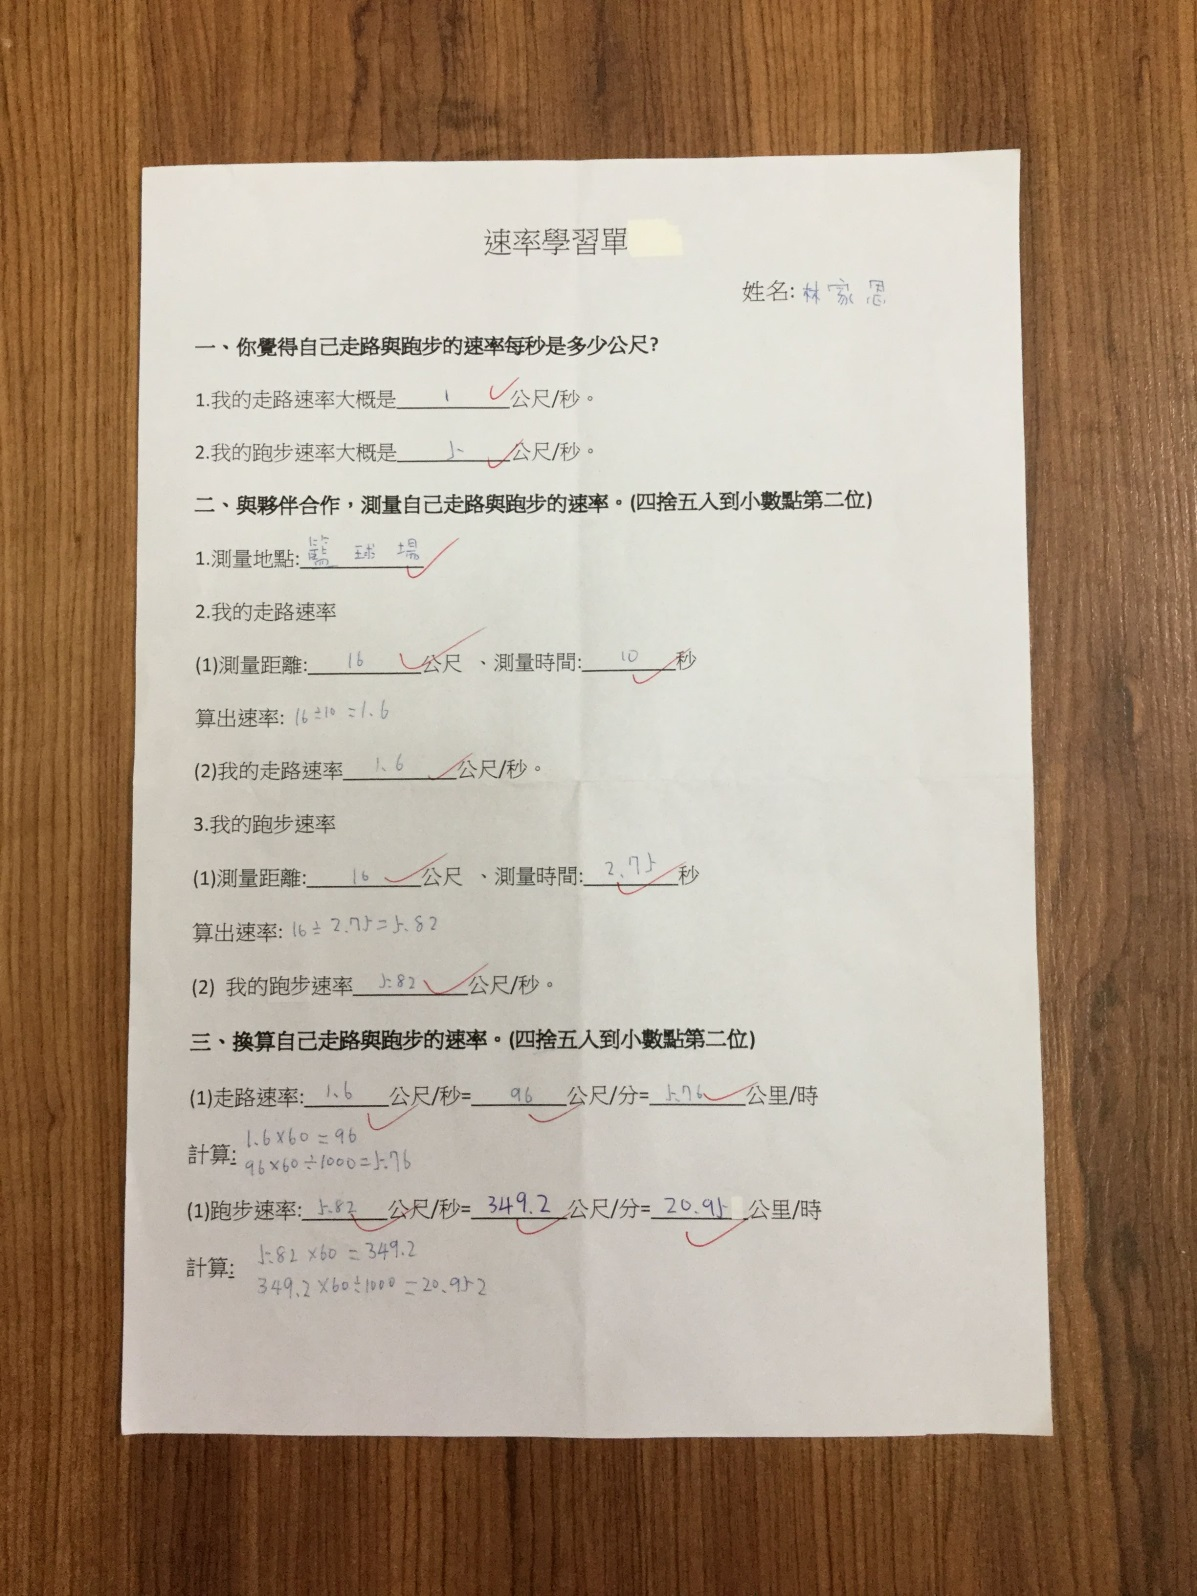 速率學習單
姓名:林家恩
一、你覺得自己走路與跑步的速率每秒是多少公尺?
1.我的走路速率大概是 1 公尺/秒。
2.我的跑步速率大概是 5 公尺/秒。
二、與夥伴合作，測量自己走路與跑步的速率。(四捨五入到小數點第二位)
1.測量地點:籃球場
2.我的走路速率
(1)測量距離: 16 公尺 、測量時間: 10 秒
算出速率: 16÷10=1.6
(2)我的走路速率 1.6 公尺/秒。
3.我的跑步速率
(1)測量距離: 16 公尺 、測量時間: 2.75 秒
算出速率: 16÷2.75=5.82
(2) 我的跑步速率 5.82 公尺/秒。
三、換算自己走路與跑步的速率。(四捨五入到小數點第二位)
(1)走路速率: 1.6 公尺/秒= 96 公尺/分= 5.76 公里/時
計算: 1.6×60=96
96×60÷1000=5.76
(1)跑步速率: 5.82 公尺/秒= 349.2 公尺/分= 20.95 公里/時
計算: 5.82×60=349.2
349.2×60÷1000=20.952